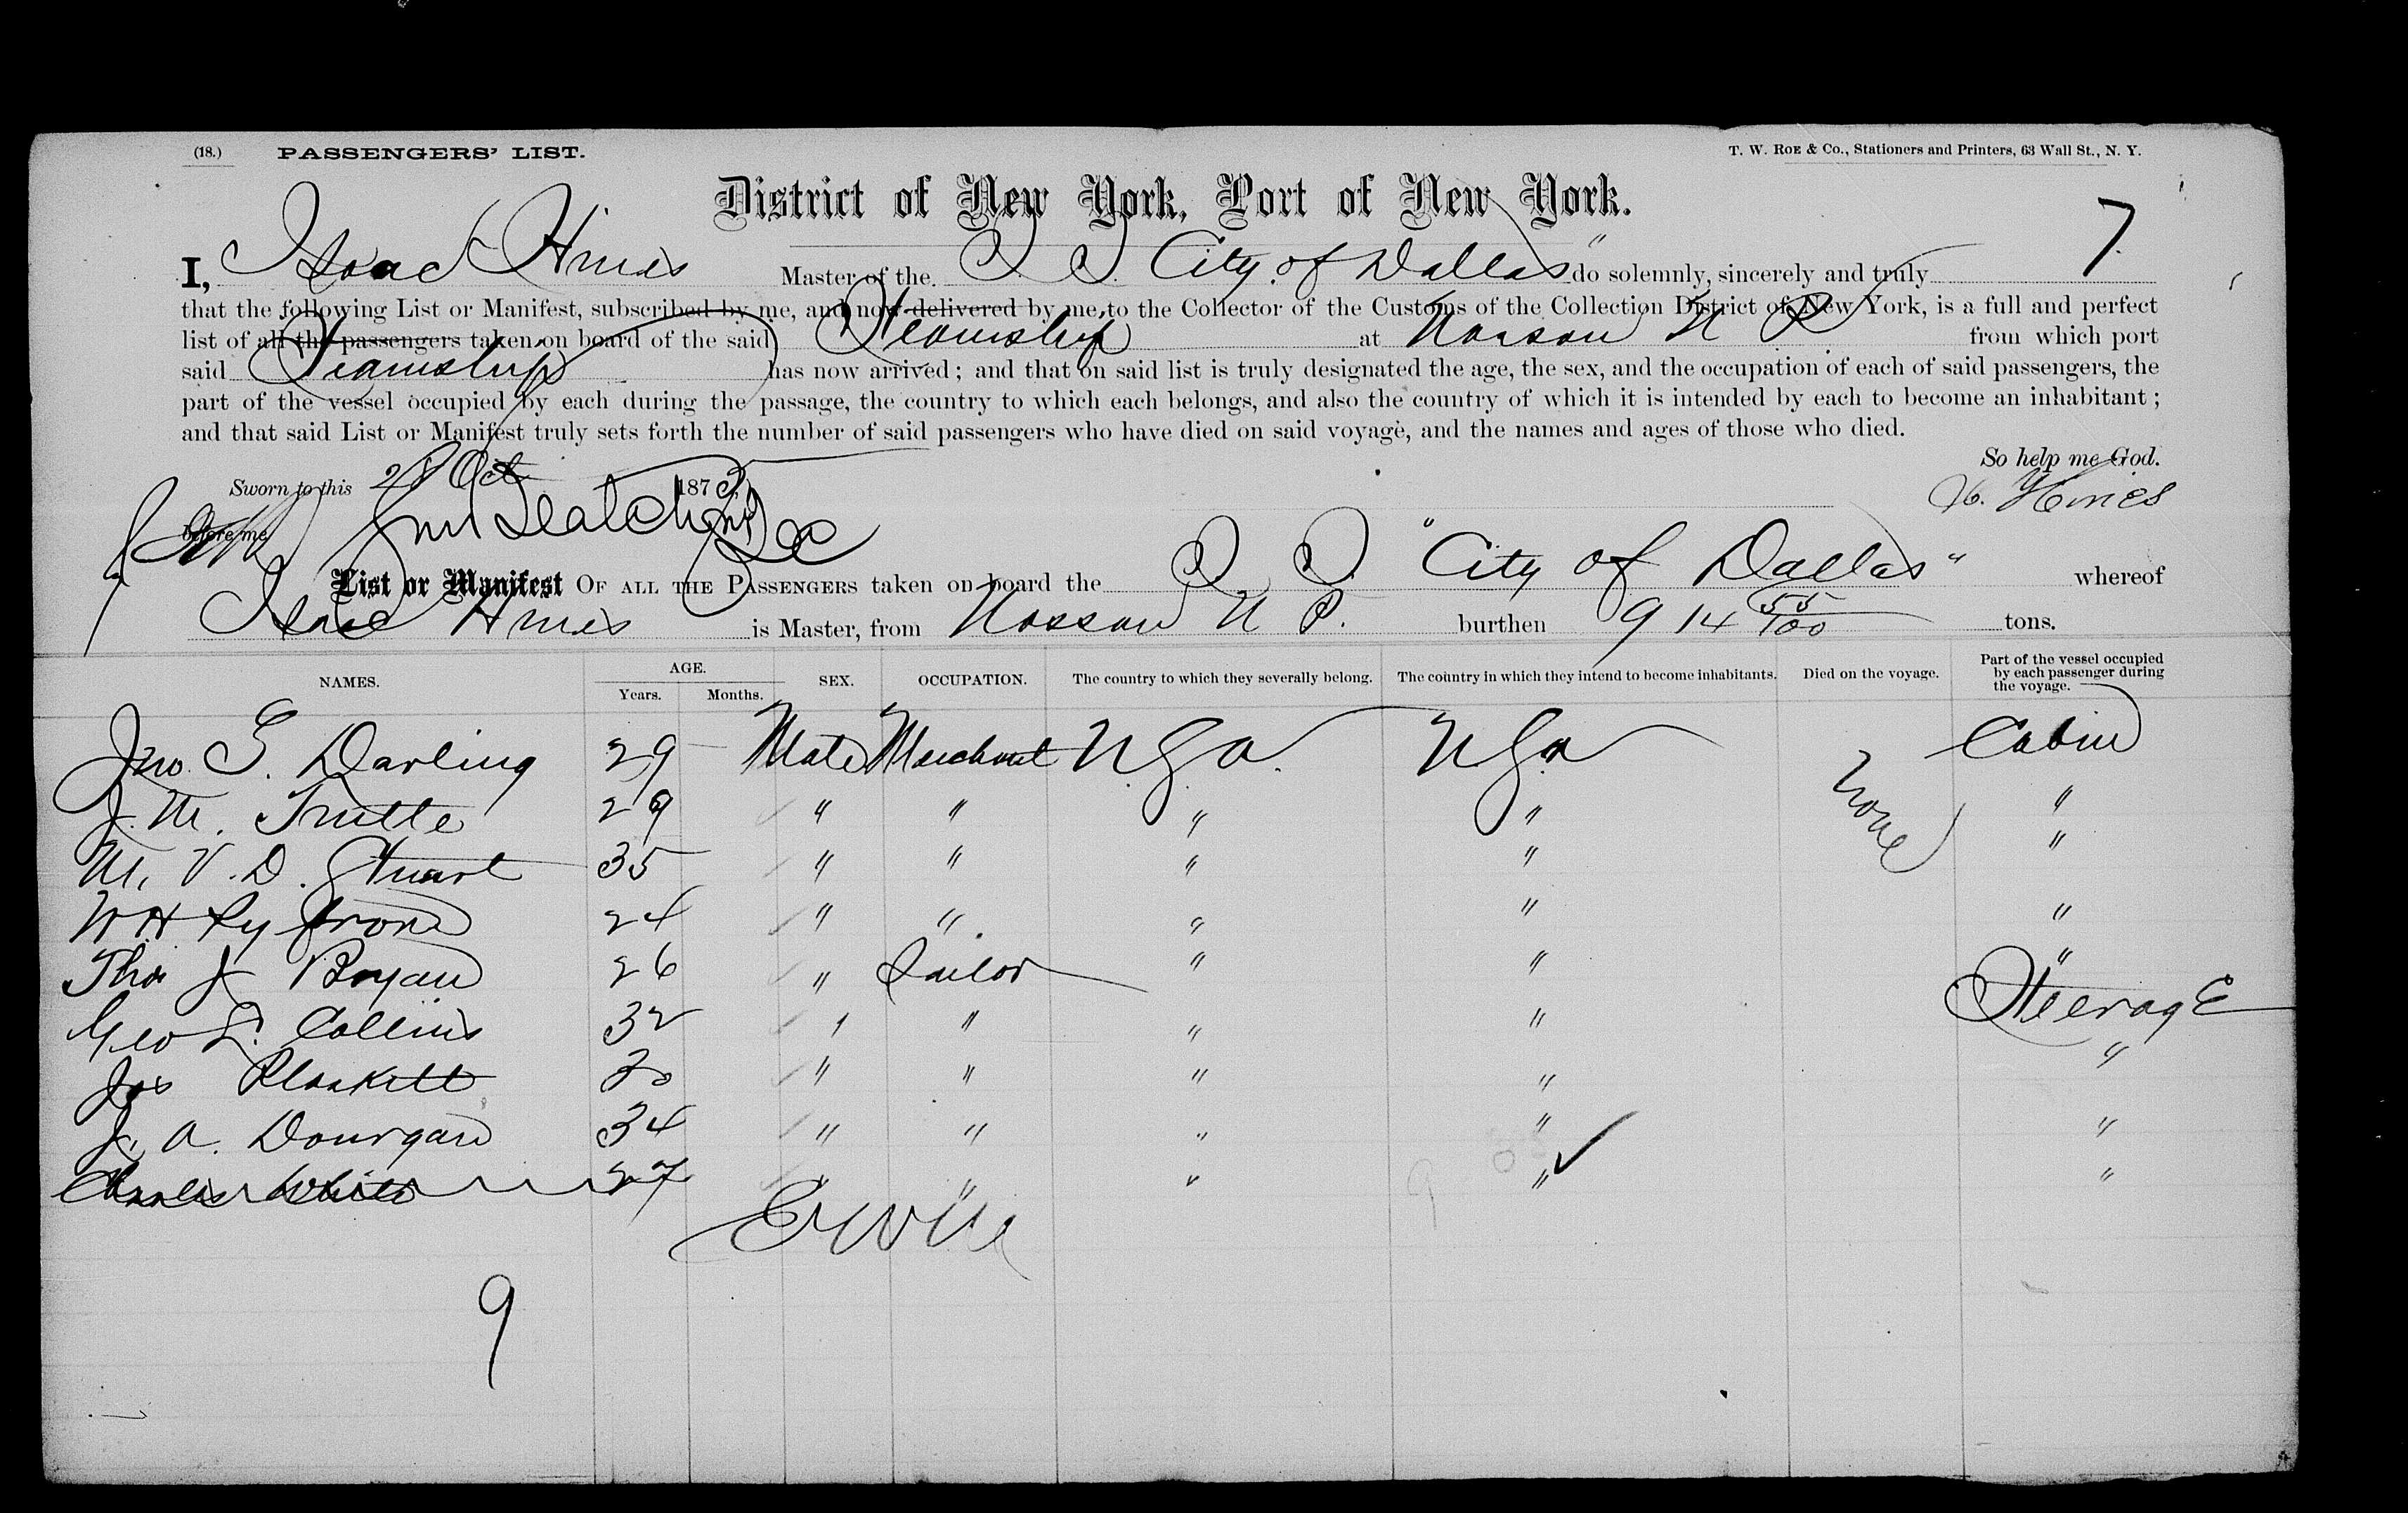 (18.) PASSENGERS' LIST. T. W. ROE & Co., Stationers and Printers, 63 Wall St., N. Y.
District of New York, Port of New York.
7
I, Isaac Hines Master of the S. S. City of Dallas" do solemnly, sincerely and truly
that the following List or Manifest, subscribed by me, and now delivered by me to the Collector of the Customs of the Collection District of New York, is a full and perfect
list of all the passengers taken on board of the said Steamship at Nassau N P from which port
said Steamship has now arrived; and that on said list is truly designated the age, the sex, and the occupation of each of said passengers, the
part of the vessel occupied by each during the passage, the country to which each belongs, and also the country of which it is intended by each to become an inhabitant;
and that said List or Manifest truly sets forth the number of said passengers who have died on said voyage, and the names and ages of those who died.
So help me God.
Sworn to this 28 Oct 1873, Hines
before me
List or Manifest OF ALL THE PASSENGERS taken on board the S. S. "City of Dallas" whereof
Isaac Hines is Master, from Nassau N P. burthen 914 55/100 tons.
NAMES. AGE. Years. Months. SEX. OCCUPATION. The country to which they severally belong. The country in which they intend to become inhabitants. Died on the voyage. Part of the vessel occupied by each passenger during the voyage.
Jno. G. Darling 29 Male Merchant U S a. U S a Cabin
J. M. 29 " " " " none "
M. V. D. Stuart 35 " " " " "
W H 24 " " " " "
Thos J Bryan 26 " Sailor " " "
Geo L. Collins 32 " " " " Steerage
Jas Plaskett 30 " " " " "
J. A. Dourgan 34 " " " " "
Charles White 27 " " " " "
9